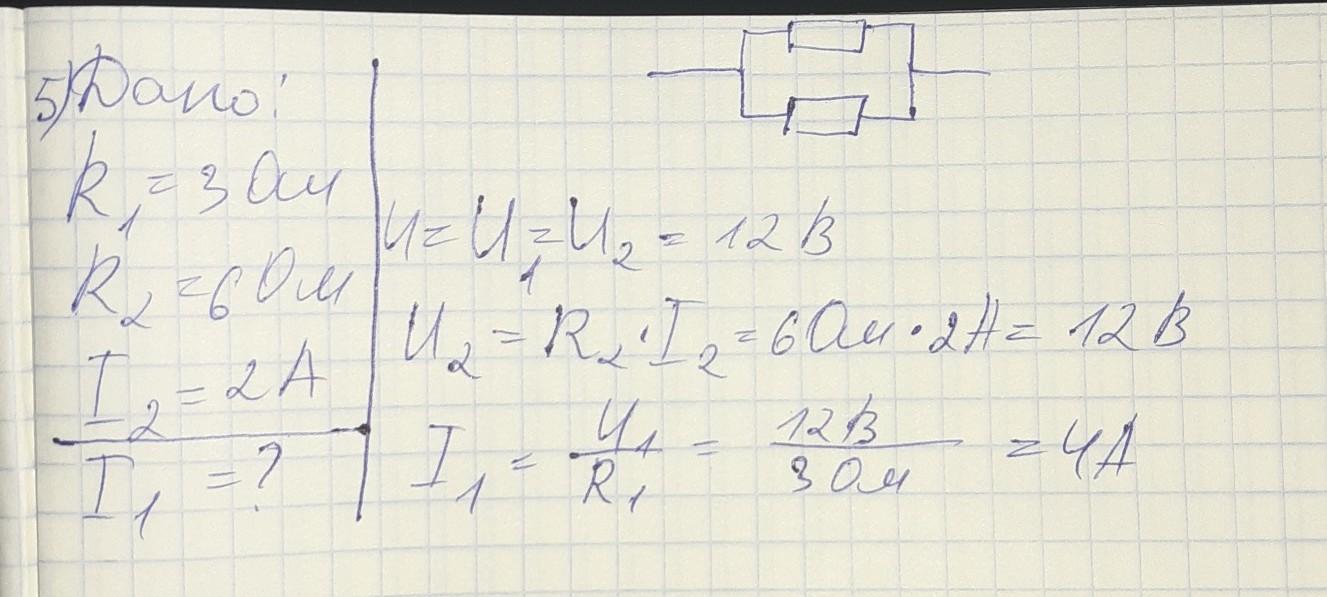 5) Дано:
R₁ = 3 Ом
R₂ = 6 Ом
I₂ = 2 А
I₁ = ?
U = U₁ = U₂ = 12 В
U₂ = R₂ · I₂ = 6 Ом · 2 А = 12 В
I₁ = U₁/R₁ = 12 В/3 Ом = 4 А